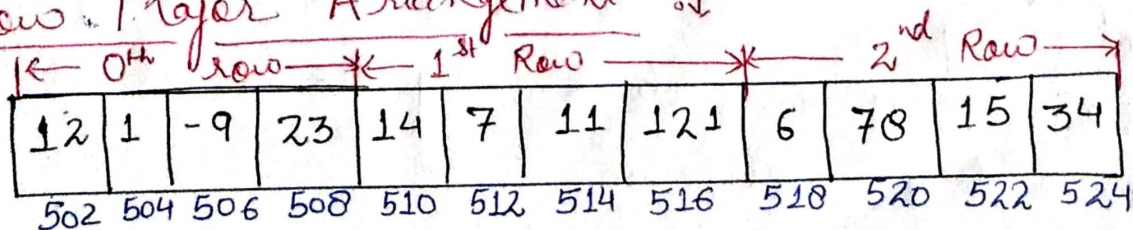 Row Major Arrangement :-
0th row 1st Row 2nd Row
12 1 -9 23 14 7 11 121 6 78 15 34
502 504 506 508 510 512 514 516 518 520 522 524